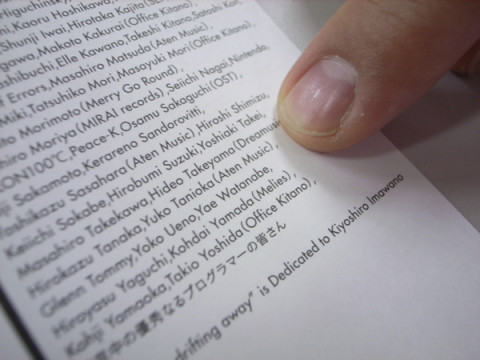 Higuchinsky
ni,Kaoru Hoshikawa,
Shunji Iwai,Hirotaka Kajita
gawa,Makoto Kakurai(Office Kitano),
ashibuchi,Elle Kawano,Takeshi Kitano,Satoshi Kon,
l Errors,Masahiro Matsuda(Aten Music),
Miki,Tatsuhiko Mori,Masayuki Mori(Office Kitano),
Morimoto(Merry Go Round),
hiro Moriya(MIRAI records),Seiichi Nagai,Nintendo,
ON100℃,Peace-K,Osamu Sakaguchi(OST),
ji Sakamoto,Kerareno Sandorovitti,
Yoshikazu Sasahara(Aten Music),Hiroshi Shimizu,
Keiichi Sokabe,Hirobumi Suzuki,Yoshiaki Takei,
Masahiro Takekawa,Hideo Takeyama(Dreamusic
Hirokazu Tanaka,Yuko Tanioka(Aten Music),
Glenn Tommy,Yoko Ueno,Yae Watanabe,
Hirayasu Yaguchi,Kohdai Yamada(Melies),
Kohji Yamaoka,Takio Yoshida(Office Kitano),
中の優秀なるプログラマーの皆さん
drifting away" is Dedicated to Kiyoshiro Imawano